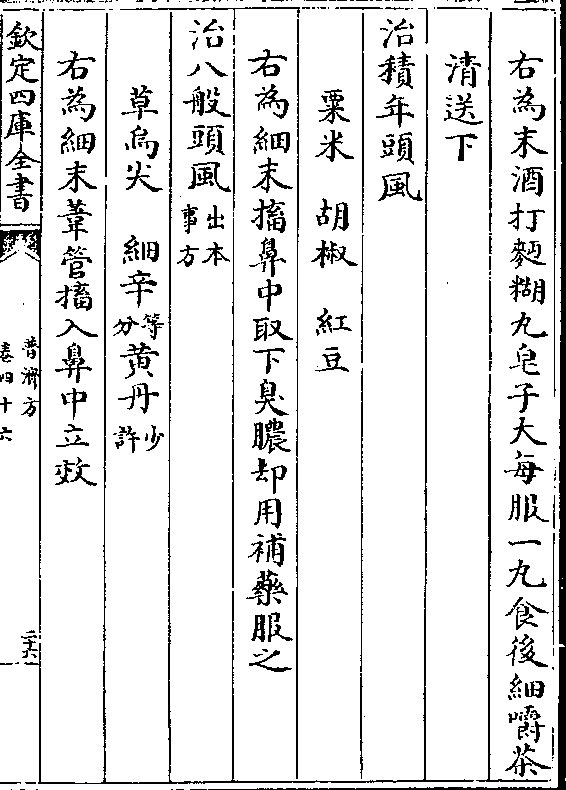 右為末酒打麪糊丸皂子大每服一丸食後細嚼茶
清送下
治積年頭風
粟米　胡椒　紅豆
右為細末搐鼻中取下臭膿却用補藥服之
治八般頭風出本事方
草烏尖　細辛等分黃丹少許
右為細末葦管搐入鼻中立效
欽定四庫全書
普濟方
卷四十六
二十六